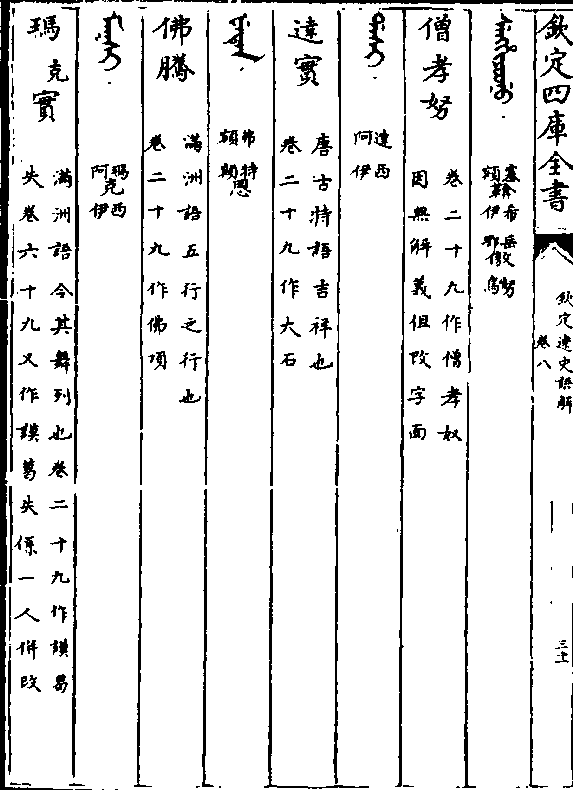 欽定四庫全書
欽定遼史語解
卷八
僧孝努
卷二十九作僧孝奴
因無解義但改字面
達西
阿伊
達實
唐古特語吉祥也
卷二十九作大石
弗特恩
佛騰
滿洲語五行之行也
卷二十九作佛頂
瑪克西
阿伊
瑪克實
滿洲語令其舞列也卷二十九作謨曷
失卷六十九又作謨葛失係一人併改